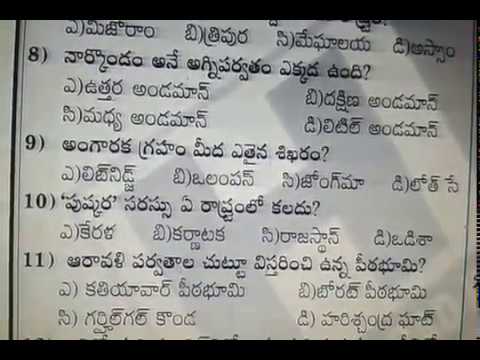 ఎ)మిజోరాం బి)త్రిపుర సి)మేఘాలయ డి)అస్సాం
8) నార్కొండం అనే అగ్నిపర్వతం ఎక్కడ ఉంది?
ఎ)ఉత్తర అండమాన్ బి)దక్షిణ అండమాన్
సి)మధ్య అండమాన్ డి)లిటిల్ అండమాన్
9) అంగారక గ్రహం మీద ఎతైన శిఖరం?
ఎ)లిబ్‌నిడ్జ్ బి)ఒలంపన్ సి)జోంగ్‌మా డి)లోత్ సే
10) 'పుష్కర' సరస్సు ఏ రాష్ట్రంలో కలదు?
ఎ)కేరళ బి)కర్ణాటక సి)రాజస్థాన్ డి)ఒడిశా
11) ఆరావళి పర్వతాల చుట్టూ విస్తరించి ఉన్న పీఠభూమి?
ఎ) కతియావార్ పీఠభూమి బి)బోరట్ పీఠభూమి
సి) గర్హిల్‌గల్ కొండ డి) హరిశ్చంద్ర ఘాట్